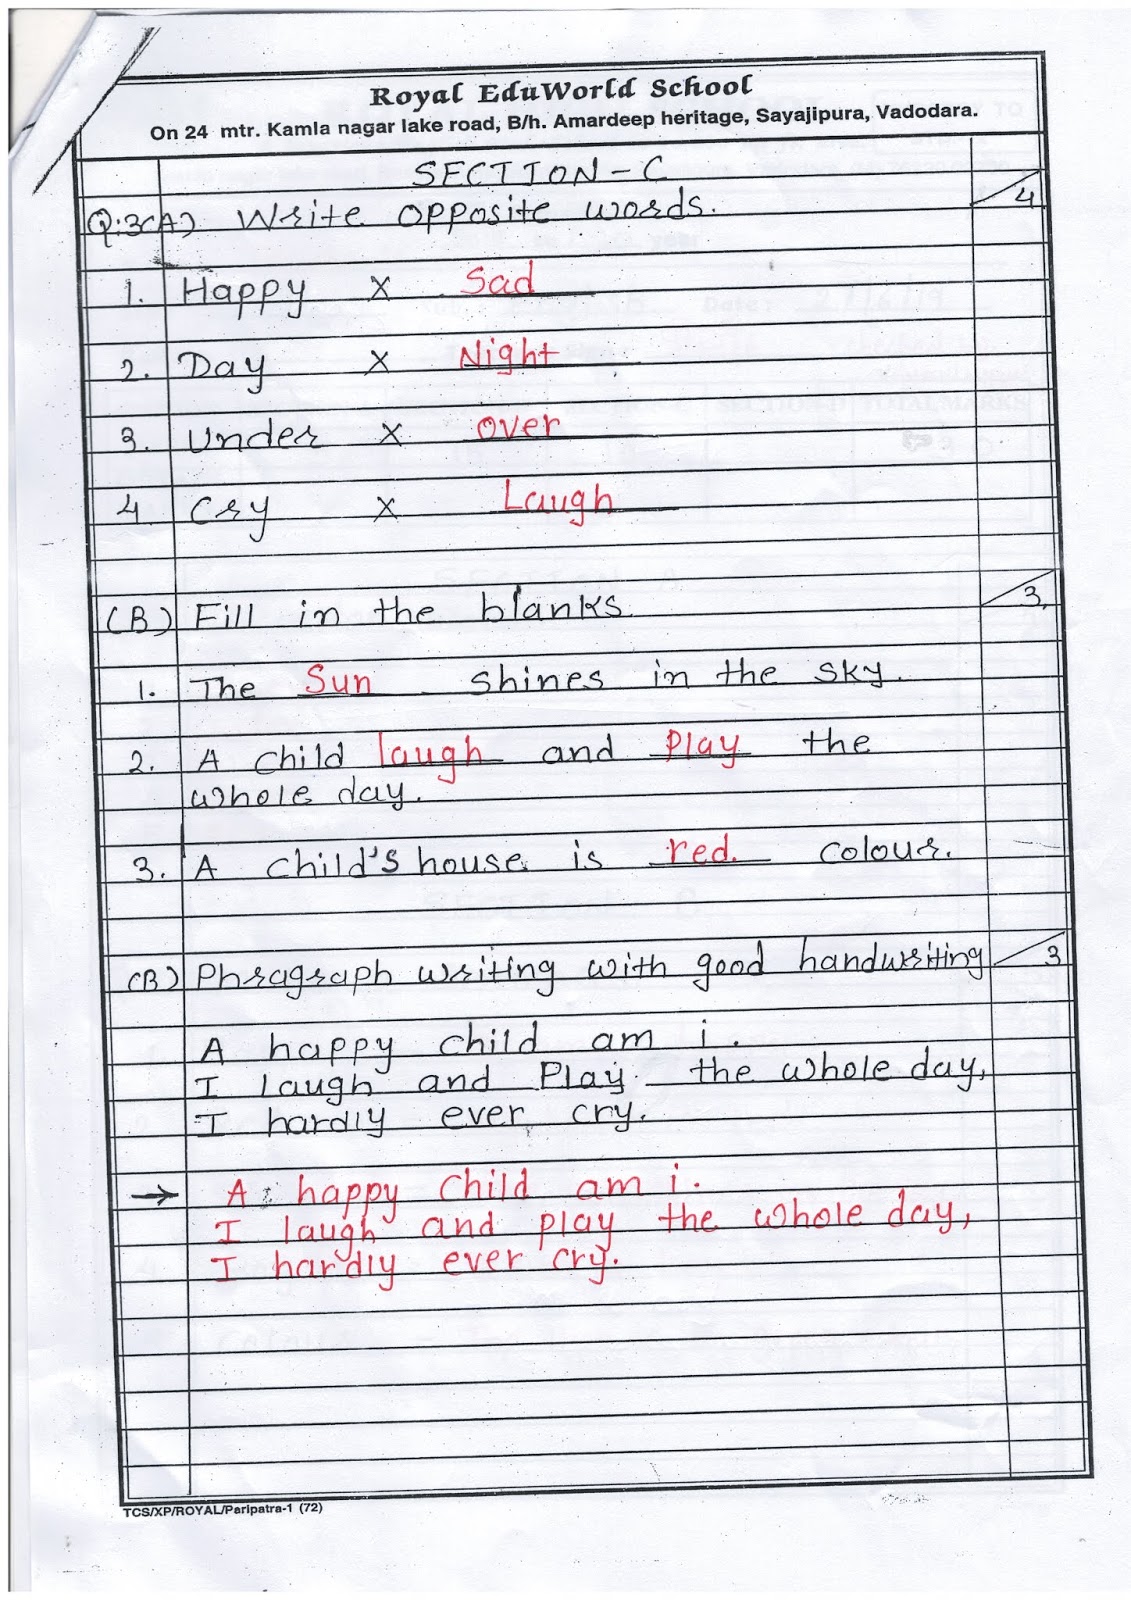 Royal EduWorld School
On 24 mtr. Kamla nagar lake road, B/h. Amardeep heritage, Sayajipura, Vadodara.
SECTION-C
Q:3(A) Write opposite words. 4
1. Happy X Sad
2. Day X Night
3. Under X Over
4 Cry X Laugh
(B) Fill in the blanks. 3
1. The Sun shines in the sky.
2. A child laugh and Play the
whole day.
3. A child's house is red. colour.
(B) Phragraph writing with good handwriting 3
A happy child am i.
I laugh and Play the whole day,
I hardly ever cry.
→ A happy child am i.
I laugh and play the whole day,
I hardly ever cry.
TCS/XP/ROYAL/Paripatra-1 (72)